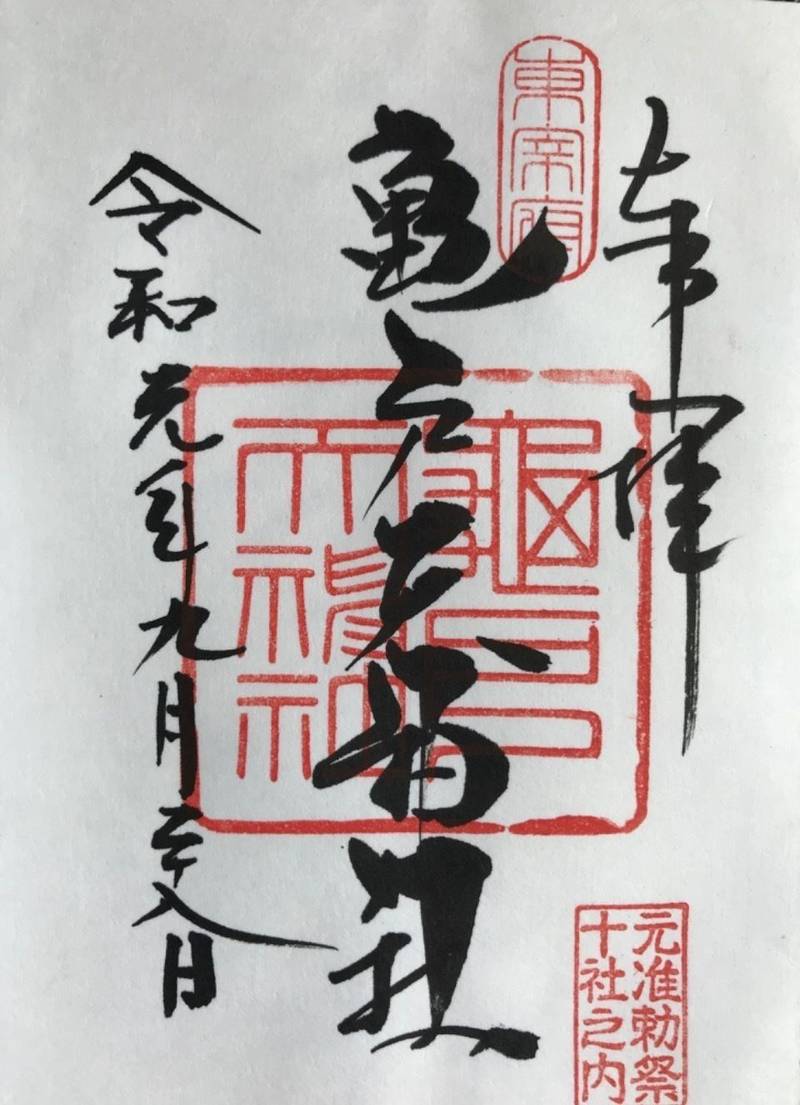 奉拝
東宰府
亀戸天神社
亀戸
天神社
令和元年九月二十八日
元准勅祭
十社之内